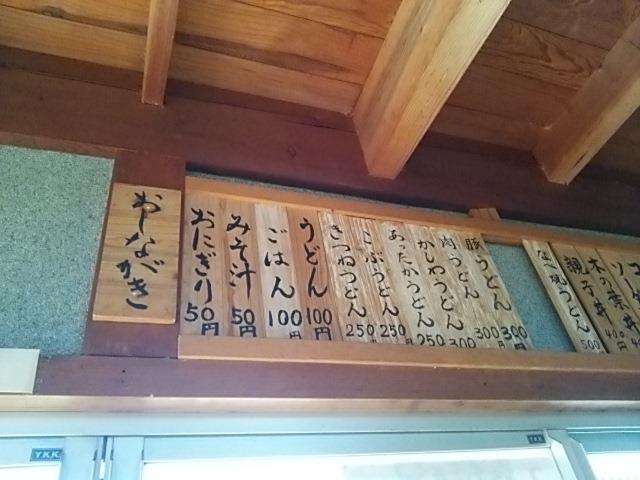 おしながき
おにぎり 50円
みそ汁 50円
ごはん 100円
うどん 100円
きつねうどん 250
こぶうどん 250
あったかうどん 250
かしわうどん 300
肉うどん 300
豚うどん 300
なべ焼うどん 500
親子丼
木の葉丼 40
YKK
YKK